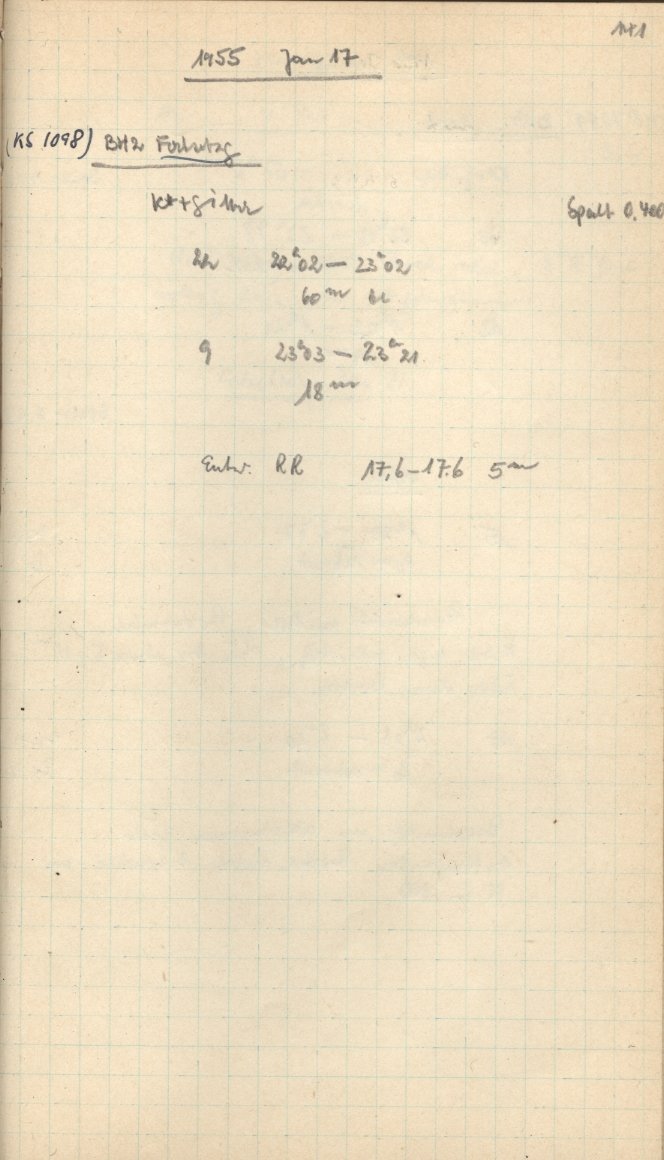 1955 Jan 17
(KS 1098) BH2 Fortsetzg
K*+Gitter
Spalt 0,400
22 22ʰ02 — 23ʰ02
60ᵐ
9 23ʰ03 — 23ʰ21
18ᵐ
Entw. RR 17,6–17.6 5ᵐ